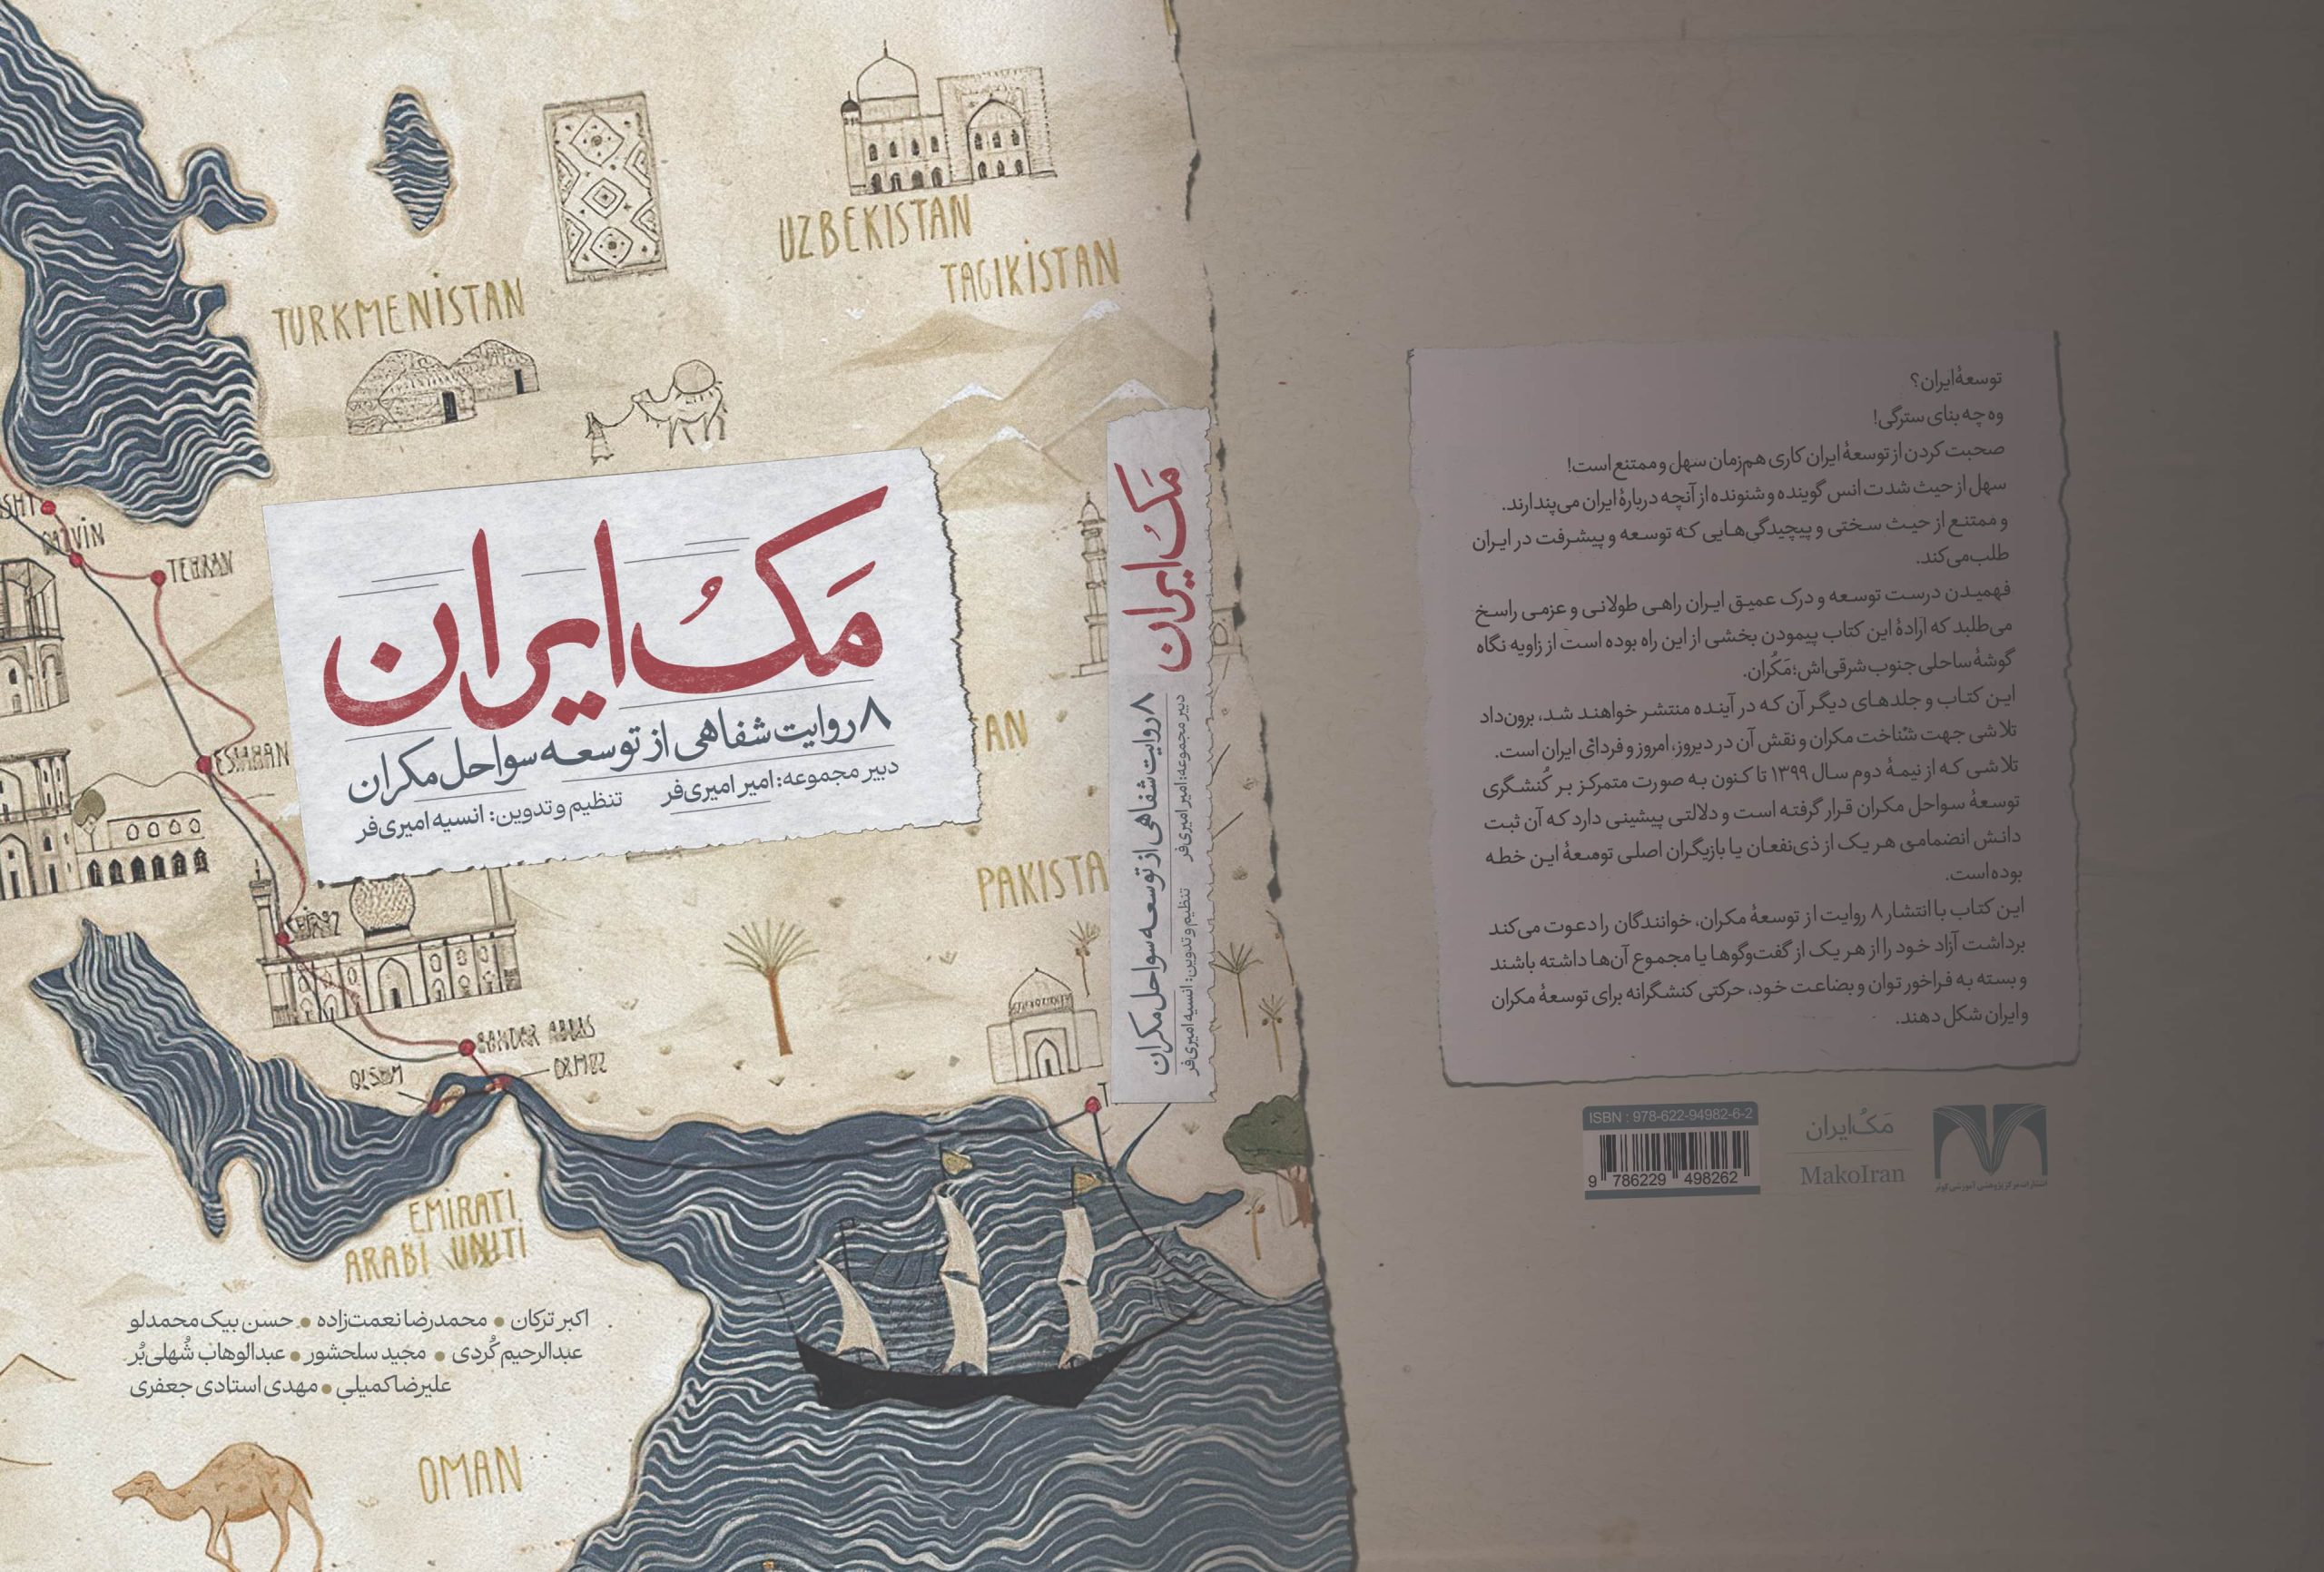 UZBEKISTAN
TAGIKISTAN
TURKMENISTAN
QAZVIN
TEHRAN
ESFAHAN
مَکُ‌ایران
۸ روایت شفاهی از توسعه سواحل مکران
دبیر مجموعه: امیر امیری‌فر
تنظیم و تدوین: انسیه امیری‌فر
AN
PAKISTA
SHIRAZ
BANDAR ABBAS
ORMUZ
EMIRATI
ARABI UNITI
اکبر ترکان • محمدرضا نعمت‌زاده • حسن بیک‌محمدلو
عبدالرحیم کُردی • مجید سلحشور • عبدالوهاب شُهلی‌بُر
علیرضا کمیلی • مهدی استادی جعفری
OMAN
مَکُ‌ایران
۸ روایت شفاهی از توسعه سواحل مکران
دبیر مجموعه: امیر امیری‌فر تنظیم و تدوین: انسیه امیری‌فر
توسعهٔ ایران؟
وه چه بنای سترگی!
صحبت کردن از توسعهٔ ایران کاری هم‌زمان سهل و ممتنع است!
سهل از حیث شدت انس گوینده و شنونده از آنچه دربارهٔ ایران می‌پندارند.
و ممتنع از حیث سختی و پیچیدگی‌هایی که توسعه و پیشرفت در ایران
طلب می‌کند.
فهمیدن درست توسعه و درک عمیق ایران راهی طولانی و عزمی راسخ
می‌طلبد که ارادهٔ این کتاب پیمودن بخشی از این راه بوده است از زاویه نگاه
گوشهٔ ساحلی جنوب شرقی‌اش؛ مَکُران.
این کتاب و جلدهای دیگر آن که در آینده منتشر خواهند شد، برون‌داد
تلاشی جهت شناخت مکران و نقش آن در دیروز، امروز و فردای ایران است.
تلاشی که از نیمهٔ دوم سال ۱۳۹۹ تا کنون به صورت متمرکز بر کُنشگری
توسعهٔ سواحل مکران قرار گرفته است و دلالتی پیشینی دارد که آن ثبت
دانش انضمامی هر یک از ذی‌نفعان یا بازیگران اصلی توسعهٔ این خطه
بوده است.
این کتاب با انتشار ۸ روایت از توسعهٔ مکران، خوانندگان را دعوت می‌کند
برداشت آزاد خود را از هر یک از گفت‌وگوها یا مجموع آن‌ها داشته باشند
و بسته به فراخور توان و بضاعت خود، حرکتی کنشگرانه برای توسعهٔ مکران
و ایران شکل دهند.
ISBN : 978-622-94982-6-2
9 786229 498262
مَکُ‌ایران
MakoIran
انتشارات مرکز پژوهشی آموزشی کوثر